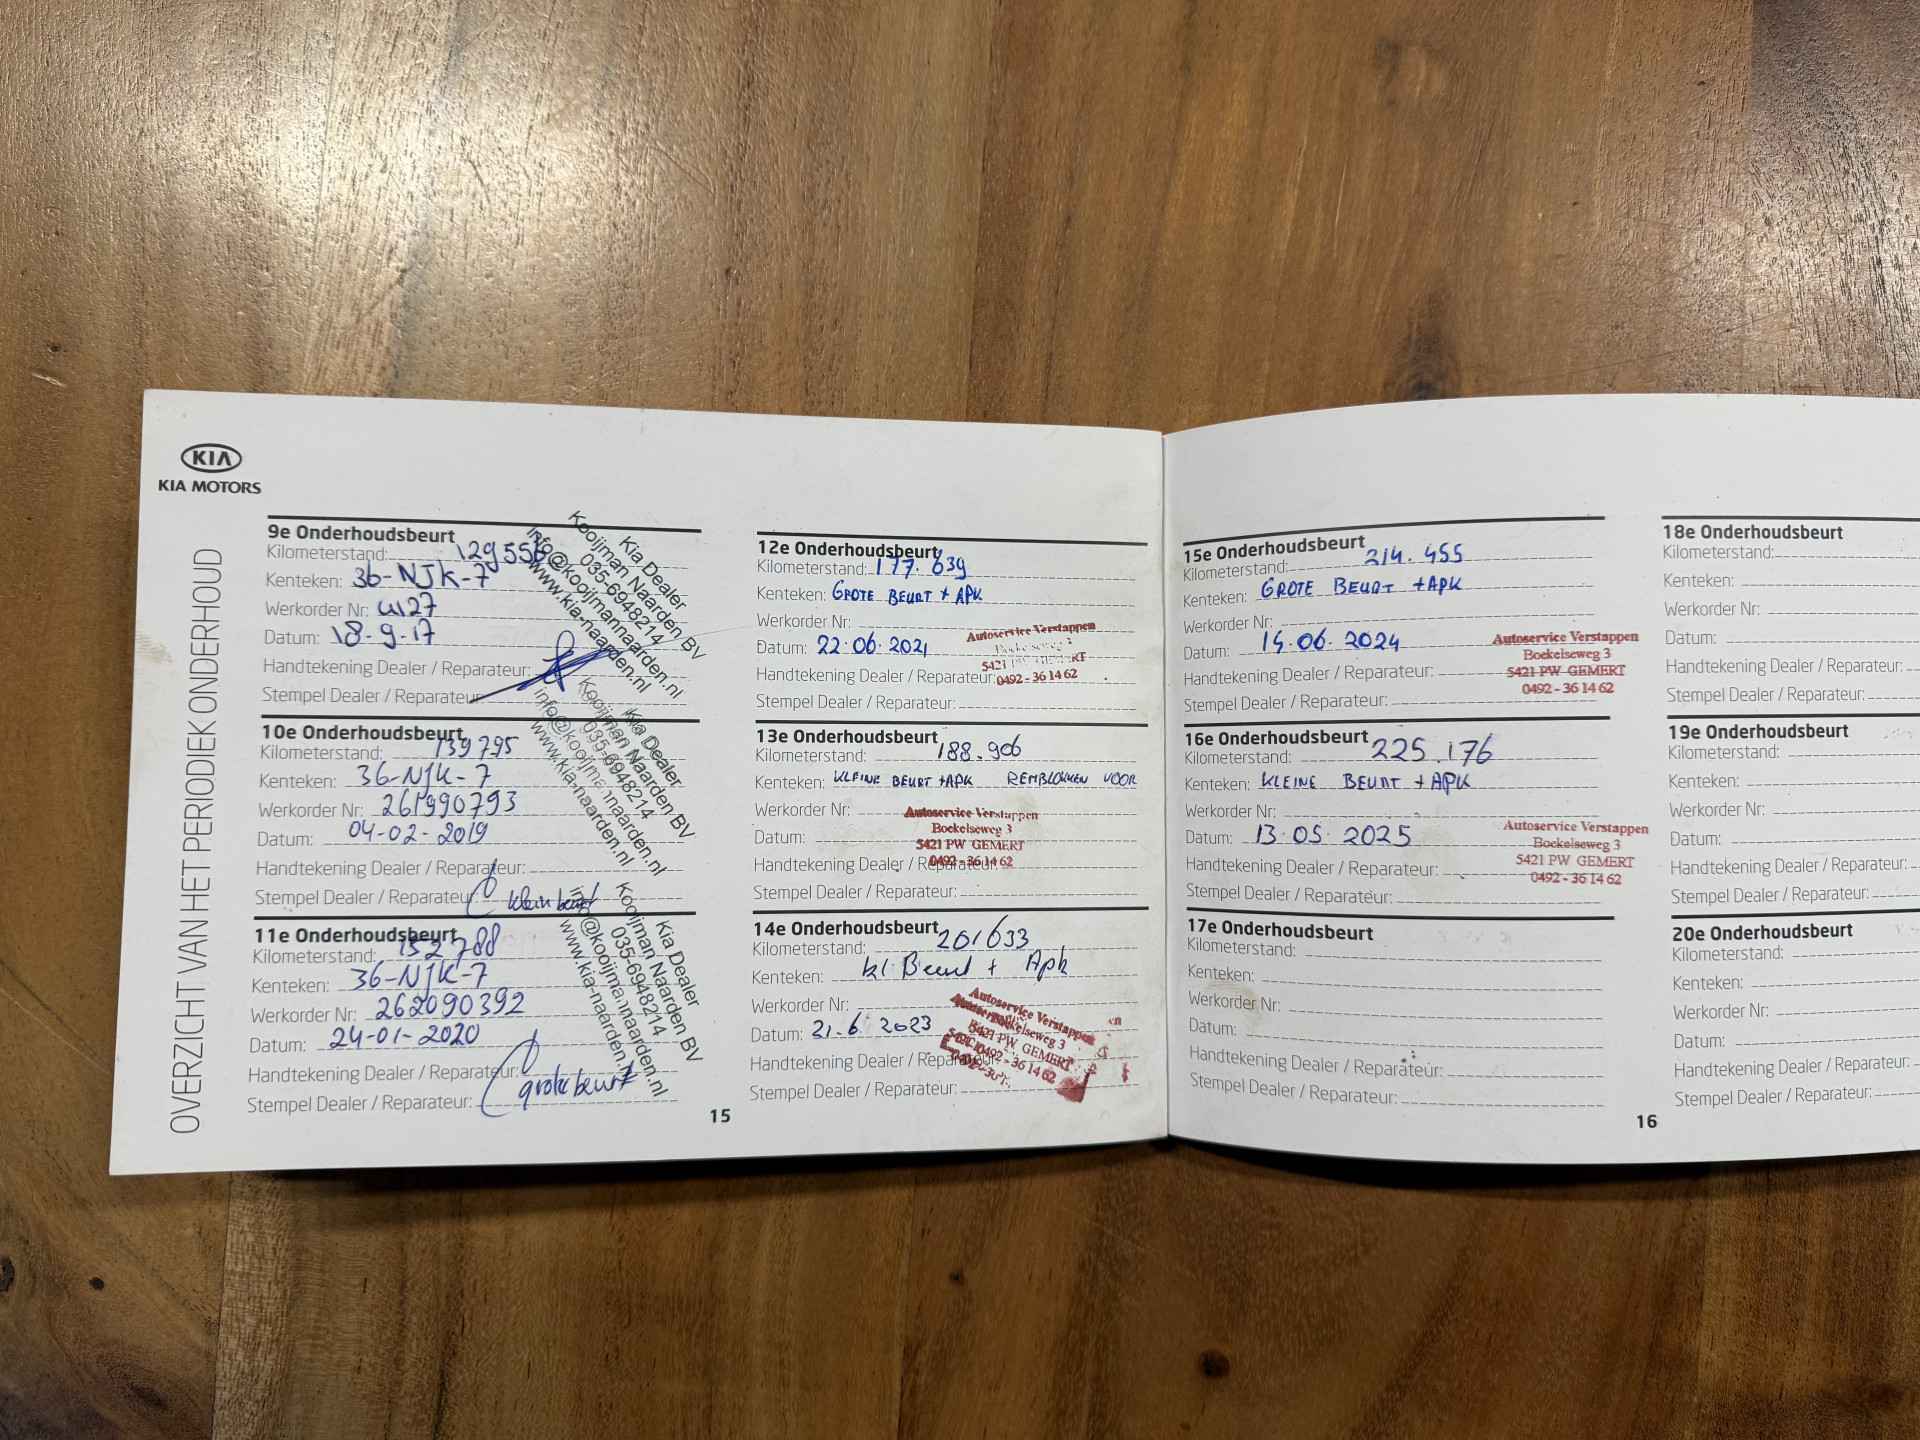 KIA
KIA MOTORS
OVERZICHT VAN HET PERIODIEK ONDERHOUD
9e Onderhoudsbeurt
Kilometerstand: 129556
Kenteken: 36-NJK-7
Werkorder Nr: 4127
Datum: 18-9-17
Handtekening Dealer / Reparateur:
Stempel Dealer / Reparateur:
Kia Dealer
Kooijman Naarden BV
035-6948214
info@kooijmannaarden.nl
www.kia-naarden.nl
10e Onderhoudsbeurt
Kilometerstand: 139795
Kenteken: 36-NJK-7
Werkorder Nr: 261990793
Datum: 04-02-2019
Handtekening Dealer / Reparateur:
Stempel Dealer / Reparateur: klein beurt
Kia Dealer
Kooijman Naarden BV
035-6948214
info@kooijmannaarden.nl
www.kia-naarden.nl
11e Onderhoudsbeurt
Kilometerstand: 152788
Kenteken: 36-NJK-7
Werkorder Nr: 262090392
Datum: 24-01-2020
Handtekening Dealer / Reparateur:
Stempel Dealer / Reparateur: grote beurt
Kia Dealer
Kooijman Naarden BV
035-6948214
info@kooijmannaarden.nl
www.kia-naarden.nl
12e Onderhoudsbeurt
Kilometerstand: 177.639
Kenteken: GROTE BEURT + APK
Werkorder Nr:
Datum: 22.06.2021
Handtekening Dealer / Reparateur:
Stempel Dealer / Reparateur:
Autoservice Verstappen
5421 GEMERT
0492 - 36 14 62
13e Onderhoudsbeurt
Kilometerstand: 188.906
Kenteken: KLEINE BEURT + APK REMBLOKKEN VOOR
Werkorder Nr:
Datum:
Handtekening Dealer / Reparateur:
Stempel Dealer / Reparateur:
Autoservice Verstappen
Boekelseweg 3
5421 PW GEMERT
0492 - 36 14 62
14e Onderhoudsbeurt
Kilometerstand: 201633
Kenteken: kl. Beurt + Apk
Werkorder Nr:
Datum: 21.6.2023
Handtekening Dealer / Reparateur:
Stempel Dealer / Reparateur:
Autoservice Verstappen
Boekelseweg 3
5421 PW GEMERT
0492 - 36 14 62
15
15e Onderhoudsbeurt
Kilometerstand: 214.455
Kenteken: GROTE BEURT + APK
Werkorder Nr:
Datum: 15.06.2024
Handtekening Dealer / Reparateur:
Stempel Dealer / Reparateur:
Autoservice Verstappen
Boekelseweg 3
5421 PW GEMERT
0492 - 36 14 62
16e Onderhoudsbeurt
Kilometerstand: 225.176
Kenteken: KLEINE BEURT + APK
Werkorder Nr:
Datum: 13.05.2025
Handtekening Dealer / Reparateur:
Stempel Dealer / Reparateur:
Autoservice Verstappen
Boekelseweg 3
5421 PW GEMERT
0492 - 36 14 62
17e Onderhoudsbeurt
Kilometerstand:
Kenteken:
Werkorder Nr:
Datum:
Handtekening Dealer / Reparateur:
Stempel Dealer / Reparateur:
18e Onderhoudsbeurt
Kilometerstand:
Kenteken:
Werkorder Nr:
Datum:
Handtekening Dealer / Reparateur:
Stempel Dealer / Reparateur:
19e Onderhoudsbeurt
Kilometerstand:
Kenteken:
Werkorder Nr:
Datum:
Handtekening Dealer / Reparateur:
Stempel Dealer / Reparateur:
20e Onderhoudsbeurt
Kilometerstand:
Kenteken:
Werkorder Nr:
Datum:
Handtekening Dealer / Reparateur:
Stempel Dealer / Reparateur:
16